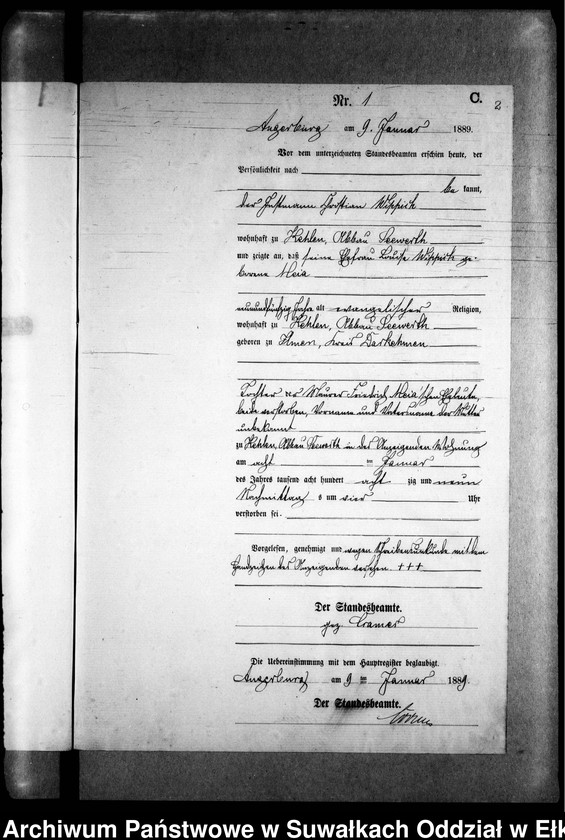 C.
2
Nr. 1
Angerburg am 9. Januar 1889.
Vor dem unterzeichneten Standesbeamten erschien heute, der
Persönlichkeit nach
be kannt,
der Instmann Christian Wippich
wohnhaft zu Kehlen, Abbau Seewerth
und zeigte an, daß seine Ehefrau Louise Wippich ge-
borene Meia
neunundfünfzig Jahre alt evangelischer Religion,
wohnhaft zu Kehlen, Abbau Seewerth
geboren zu Ilmen, Kreis Darkehmen
Tochter der Maurer Friedrich Meia'schen Eheleute,
beide verstorben, Vorname und Vatername der Mutter
unbekannt
zu Kehlen, Abbau Seewerth in des Anzeigenden Wohnung
am acht ten Januar
des Jahres tausend acht hundert acht zig und neun
Nachmittag s um vier Uhr
verstorben sei.
Vorgelesen, genehmigt und wegen Schreibensunkunde mit dem
Handzeichen des Anzeigenden versehen. +++
Der Standesbeamte.
gez. Cramer
Die Uebereinstimmung mit dem Hauptregister beglaubigt.
Angerburg am 9 ten Januar 1889.
Der Standesbeamte.
Archiwum Państwowe w Suwałkach Oddział w Ełk